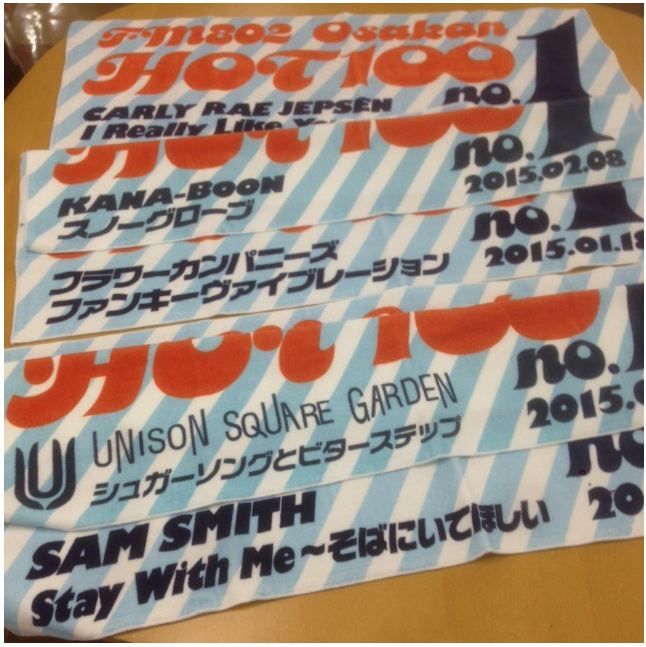 FM802 Osakan
HOT 100 no.1
CARLY RAE JEPSEN
I Really Like
HOT 100 no.1
KANA-BOON
スノーグローブ
2015.02.08
no.1
フラワーカンパニーズ
2015.01.18
ファンキーヴァイブレーション
HOT 100 no.1
UNISON SQUARE GARDEN
2015.0
シュガーソングとビターステップ
no.1
SAM SMITH
20
Stay With Me～そばにいてほしい